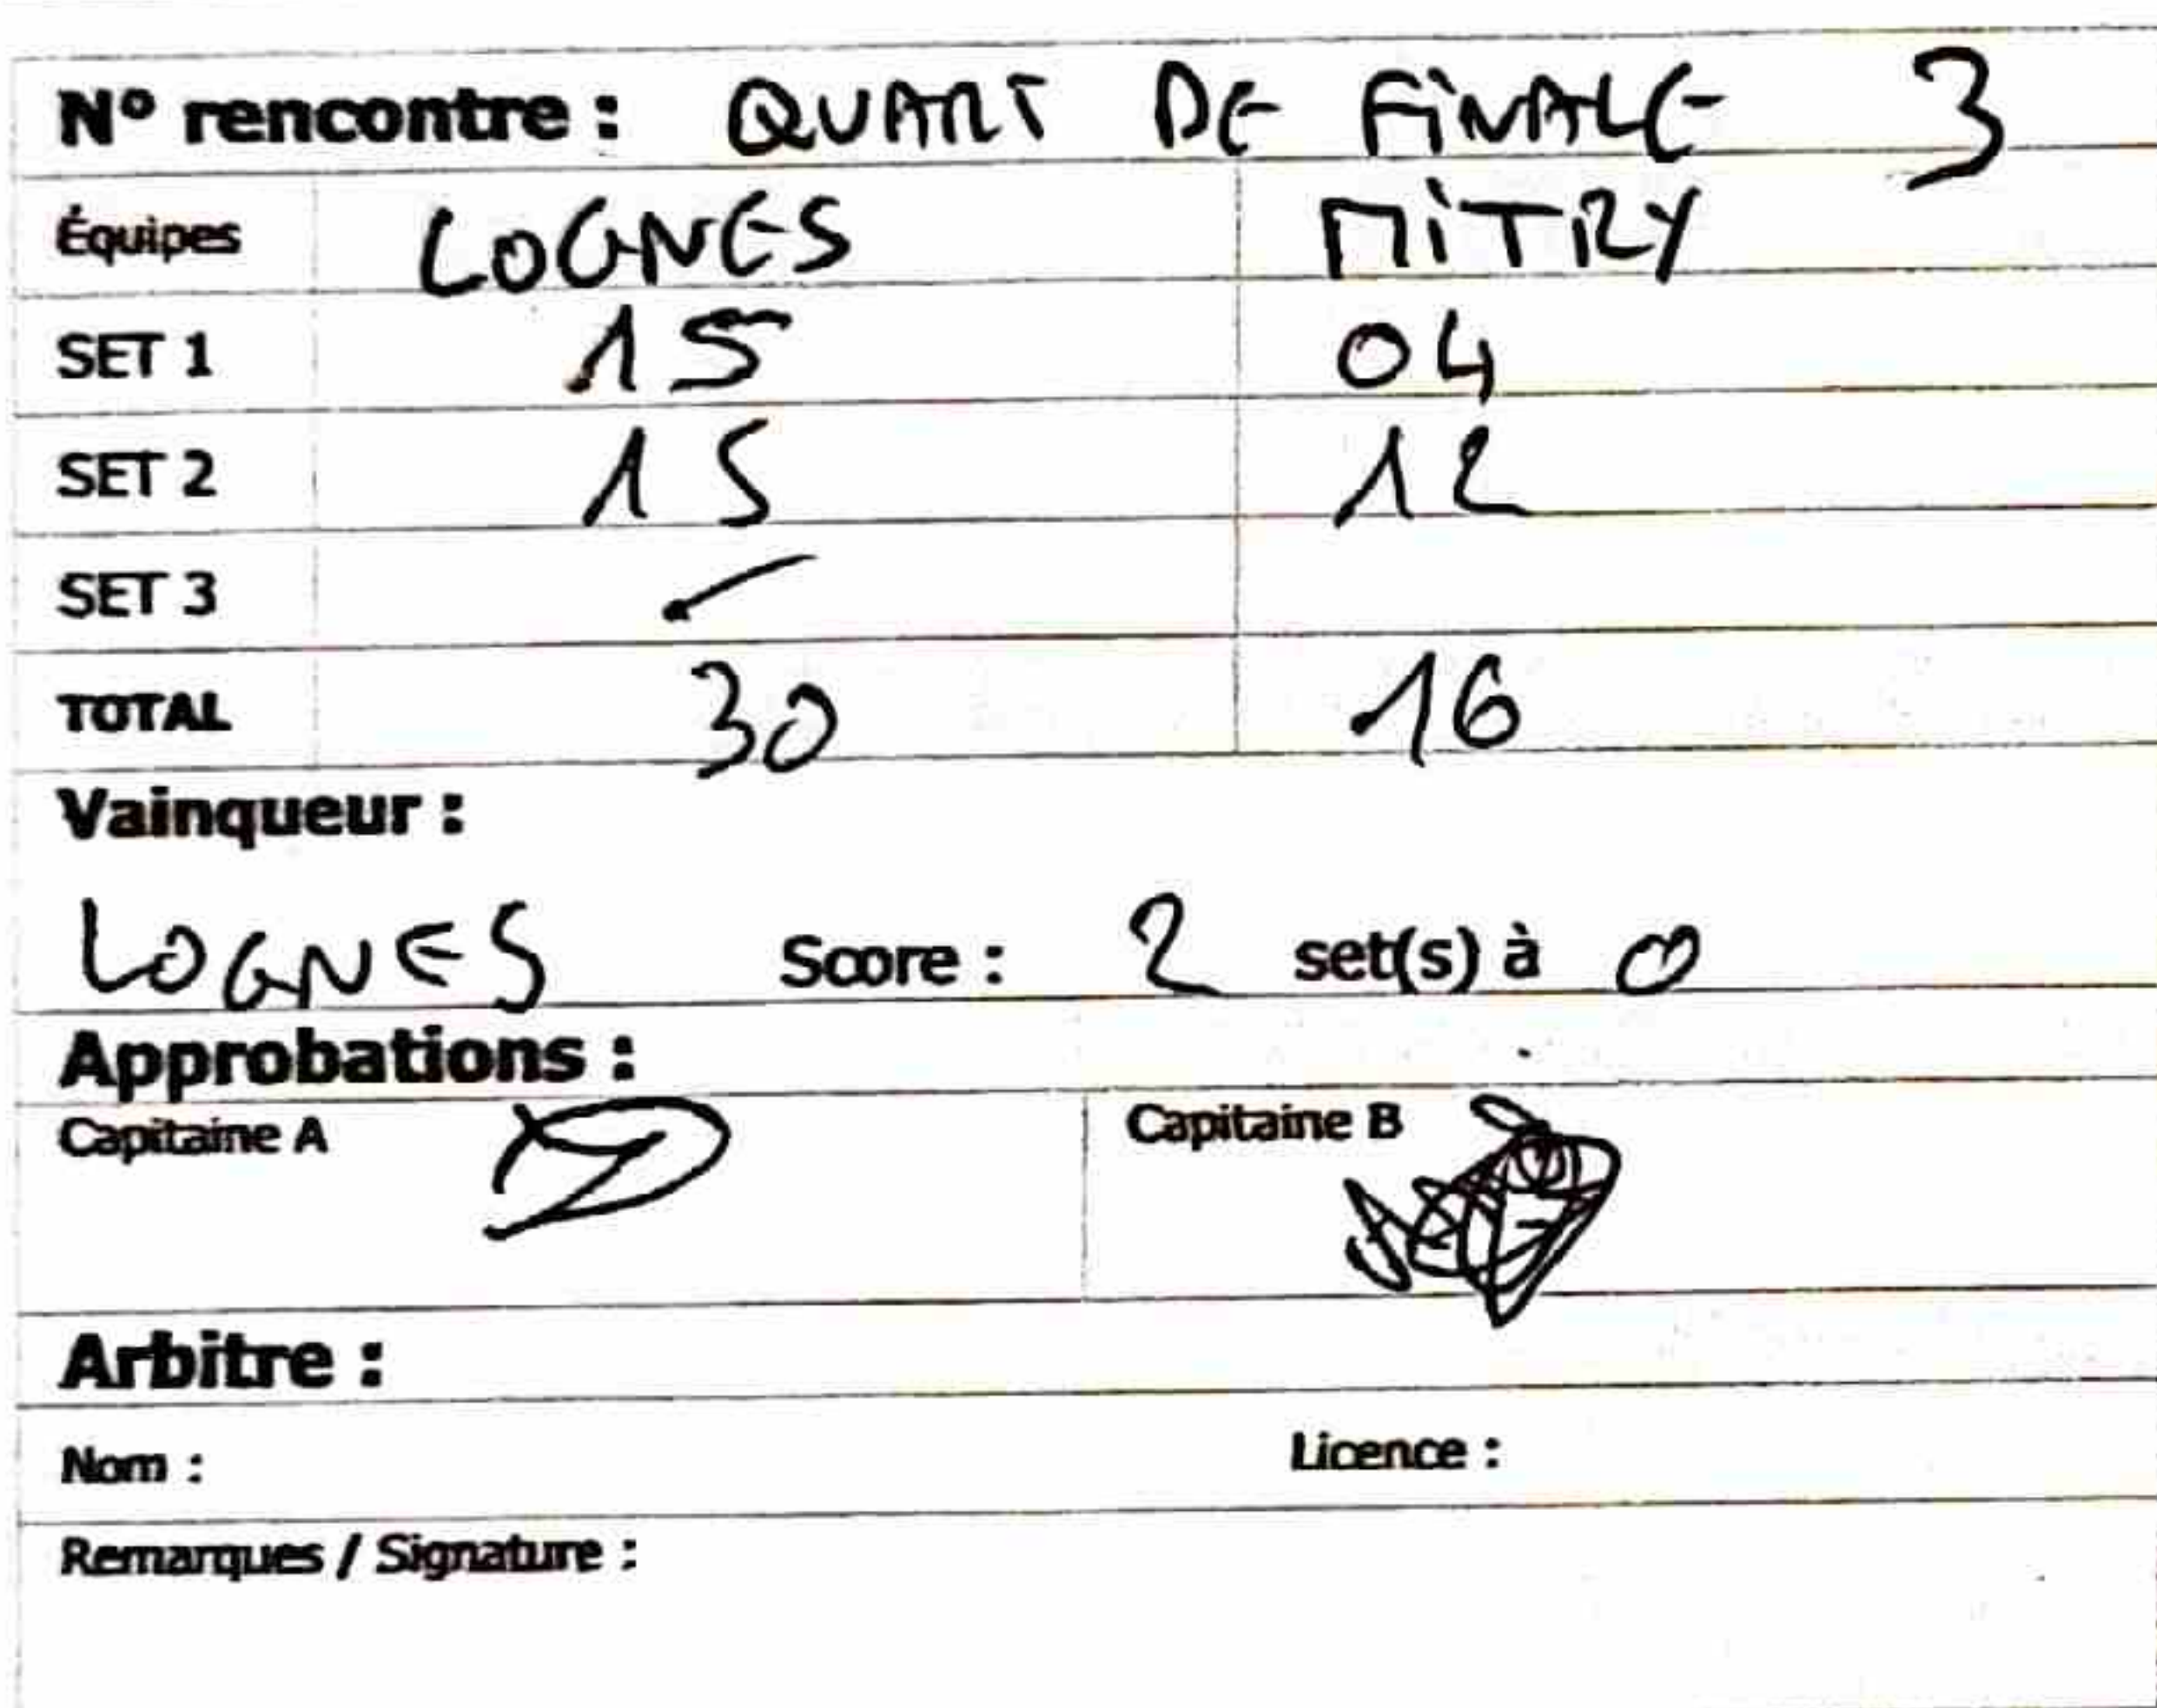 N° rencontre : QUART DE FiNALE 3
Équipes LOGNES MiTRY
SET 1 15 04
SET 2 15 12
SET 3
TOTAL 30 16
Vainqueur :
LOGNES Score : 2 set(s) à 0
Approbations :
Capitaine A Capitaine B
Arbitre :
Nom : Licence :
Remarques / Signature :